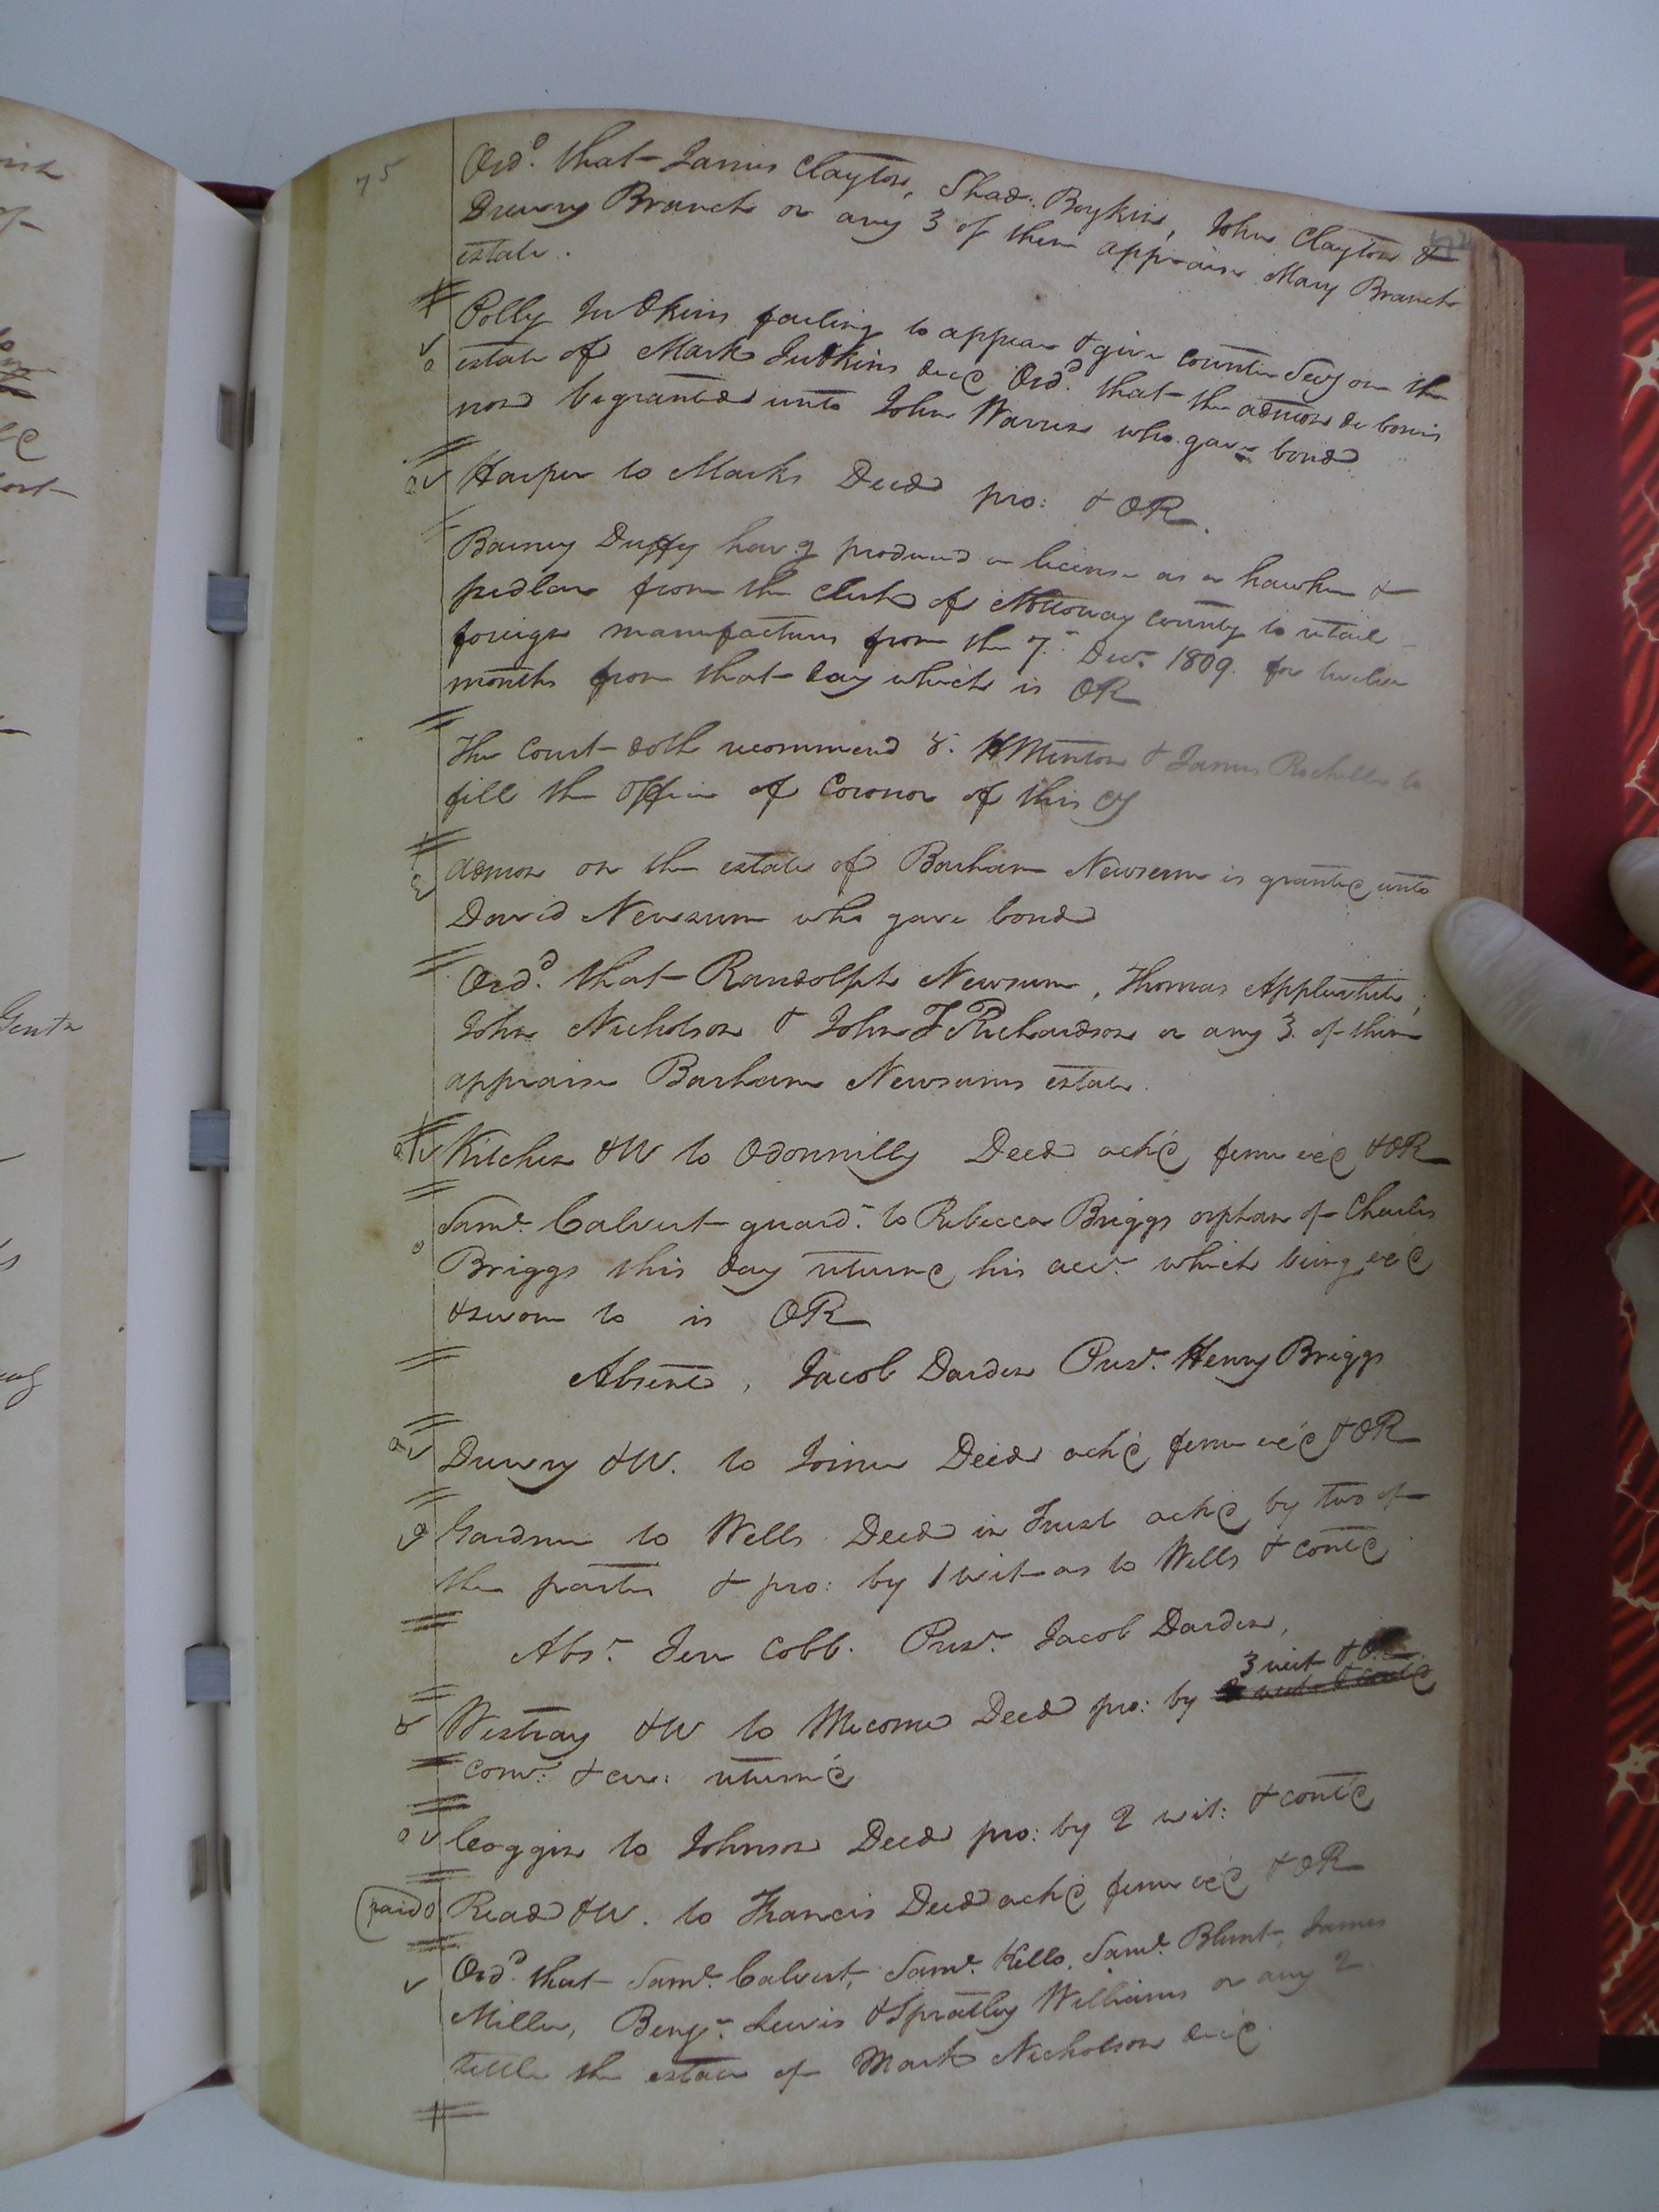 75
Ord. that James Clayton, Shad. Boykin, John Clayton &
Drewry Branch or any 3 of them appraise Mary Branch
estate.
Polly Judkins failing to appear & give counter Secy on the
estate of Mark Judkins decd Ord. that the admon de bonis
non be granted unto John Warren who gave bond
Harper to Marks Deed pro: & OR.
Barney Duffy havg produced a license as a hawker &
pedlar from the Clerk of Nottoway County to retail
foreign manufactures from the 7. Decr. 1809. for twelve
months from that day which is OR
The Court doth recommend Minton & James Rochelle to
fill the office of Coronor of this Cy
Admon on the estate of Barham Newsum is granted unto
David Newsum who gave bond
Ord. that Randolph Newsum, Thomas Applewhite,
John Nicholson & John T Richardson or any 3. of them
appraise Barham Newsums estate.
Kitchen & W to Odonnilly Deed ackd feme exd & OR
Saml. Calvert guard. to Rebecca Briggs orphan of Charles
Briggs this day returnd his acct. which being exd
& sworn to is OR
Absent, Jacob Darden Prest. Henry Briggs
Drewry & W. to Joiner Deed ackd feme exd & OR
Gardner to Wells Deed in Trust ackd by two of
the parties & pro: by 1 wit as to Wells & contd
Abst. Jere Cobb. Prest. Jacob Darden,
3 wit & OR
Westray & W to Mecome Deed pro: by
Comn. & cer: returnd
Coggin to Johnson Deed pro: by 2 wit: & contd
paid Read & W. to Francis Deed ackd feme exd & OR
Ord. that Saml. Calvert, Saml. Kello, Saml. Blunt, James
Miller, Benj. Lewis & Spratley Williams or any 2.
settle the estate of Mark Nicholson decd